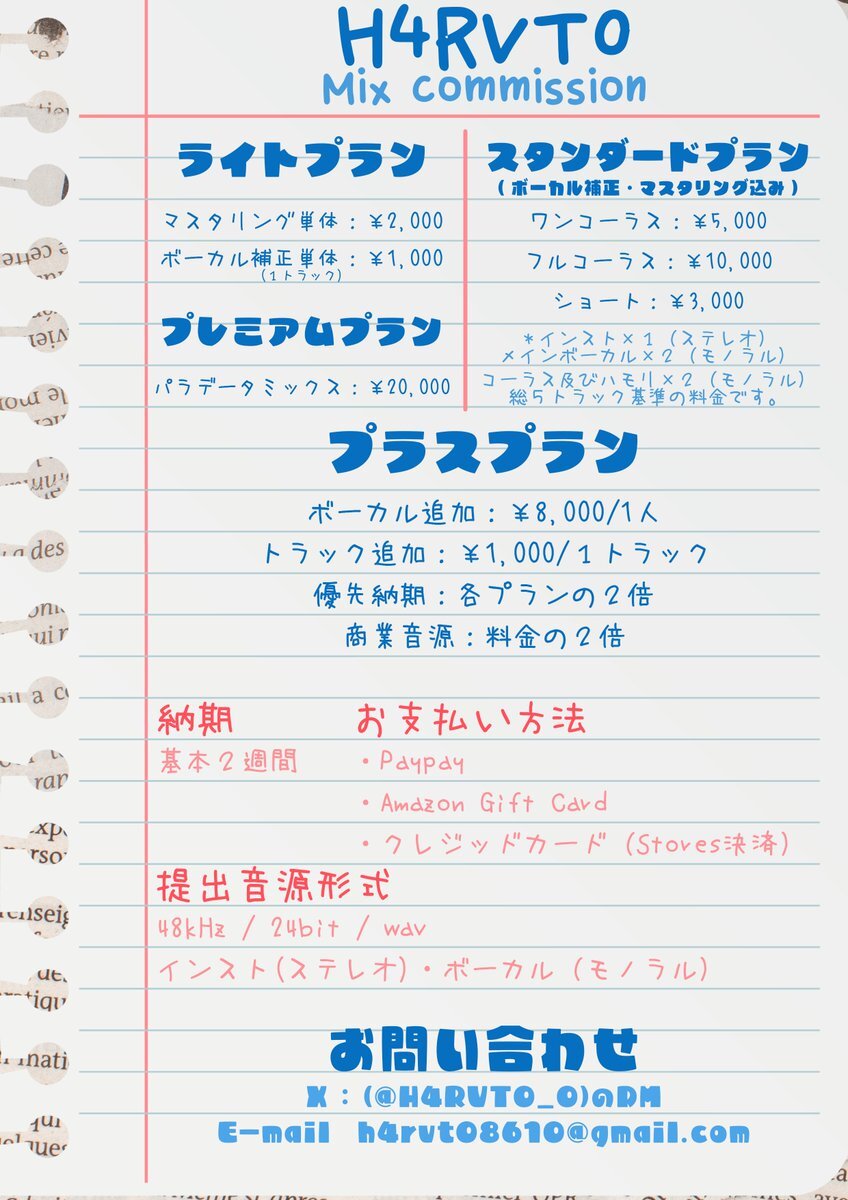 H4RVT0
Mix commission
ライトプラン
マスタリング単体：¥2,000
ボーカル補正単体：¥1,000
(1トラック)
プレミアムプラン
パラデータミックス：¥20,000
スタンダードプラン
(ボーカル補正・マスタリング込み)
ワンコーラス：¥5,000
フルコーラス：¥10,000
ショート：¥3,000
*インスト×1 (ステレオ)
メインボーカル×2 (モノラル)
コーラス及びハモリ×2 (モノラル)
総5トラック基準の料金です。
プラスプラン
ボーカル追加：¥8,000/1人
トラック追加：¥1,000/1トラック
優先納期：各プランの2倍
商業音源：料金の2倍
納期
基本2週間
お支払い方法
・Paypay
・Amazon Gift Card
・クレジッドカード (Stores決済)
提出音源形式
48kHz / 24bit / wav
インスト(ステレオ)・ボーカル (モノラル)
お問い合わせ
X：(@H4RVT0_0)のDM
E-mail h4rvt08610@gmail.com